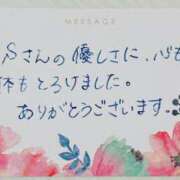 MESSAGE
Sさんの優しさに、心も
体もとろけました。
ありがとうございます。